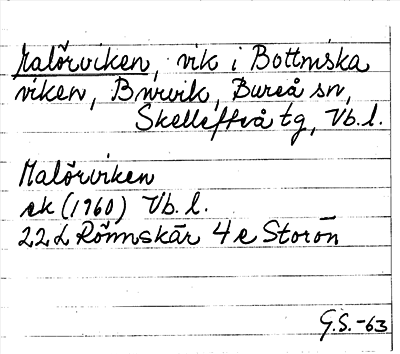 Malörviken, vik i Bottniska
viken, Burvik, Bureå sn,
Skellefteå tg, Vb.l.
Malörviken
ek (1960) Vb. l.
22 L Rönnskär 4 e Storön
G.S.-63